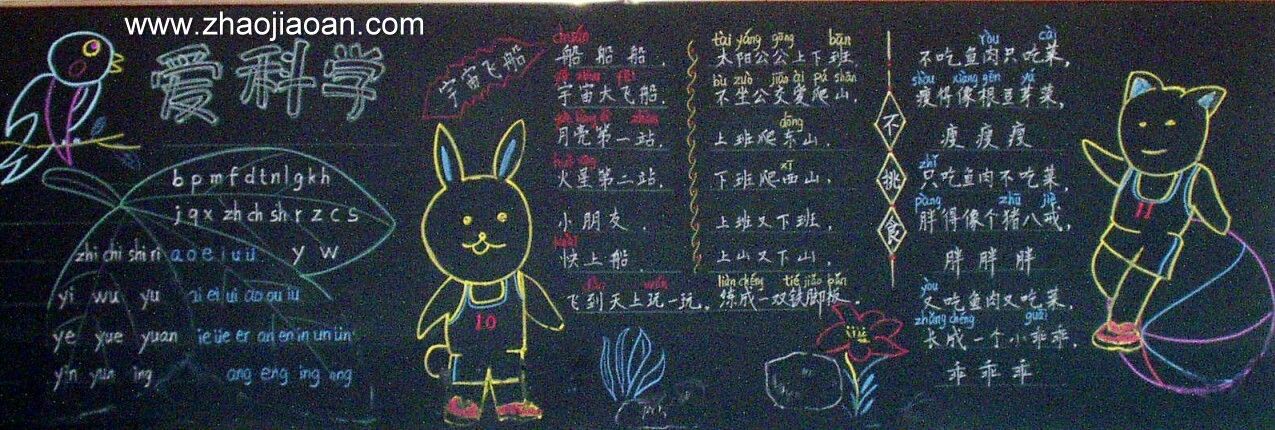 www.zhaojiaoan.com
爱科学
b p m f d t n l g k h
j q x zh ch sh r z c s
zhi chi shi ri a o e i u ü y w
yi wu yu ai ei ui ao ou iu
ye yue yuan ie üe er an en in un ün
yin yun ing ang eng ing ong
宇宙飞船
chuán
船船船，
yǔ zhòu fēi
宇宙大飞船，
yuè liàng dì zhàn
月亮第一站，
huǒ xīng
火星第二站，
小朋友，
kuài
快上船，
dào wán
飞到天上玩一玩。
10
tài yáng gōng bān
太阳公公上下班，
bù zuò jiāo ài pá shān
不坐公交爱爬山，
dōng
上班爬东山，
xī
下班爬西山，
上班又下班，
上山又下山，
liàn chéng tiě jiǎo bǎn
练成一双铁脚板。
不挑食
ròu cài
不吃鱼肉只吃菜，
shòu xiàng gēn yá
瘦得像根豆芽菜，
瘦瘦瘦
zhǐ
只吃鱼肉不吃菜，
pàng zhū jiè
胖得像个猪八戒，
胖胖胖
yòu
又吃鱼肉又吃菜，
zhǎng chéng guāi
长成一个小乖乖，
乖乖乖
11